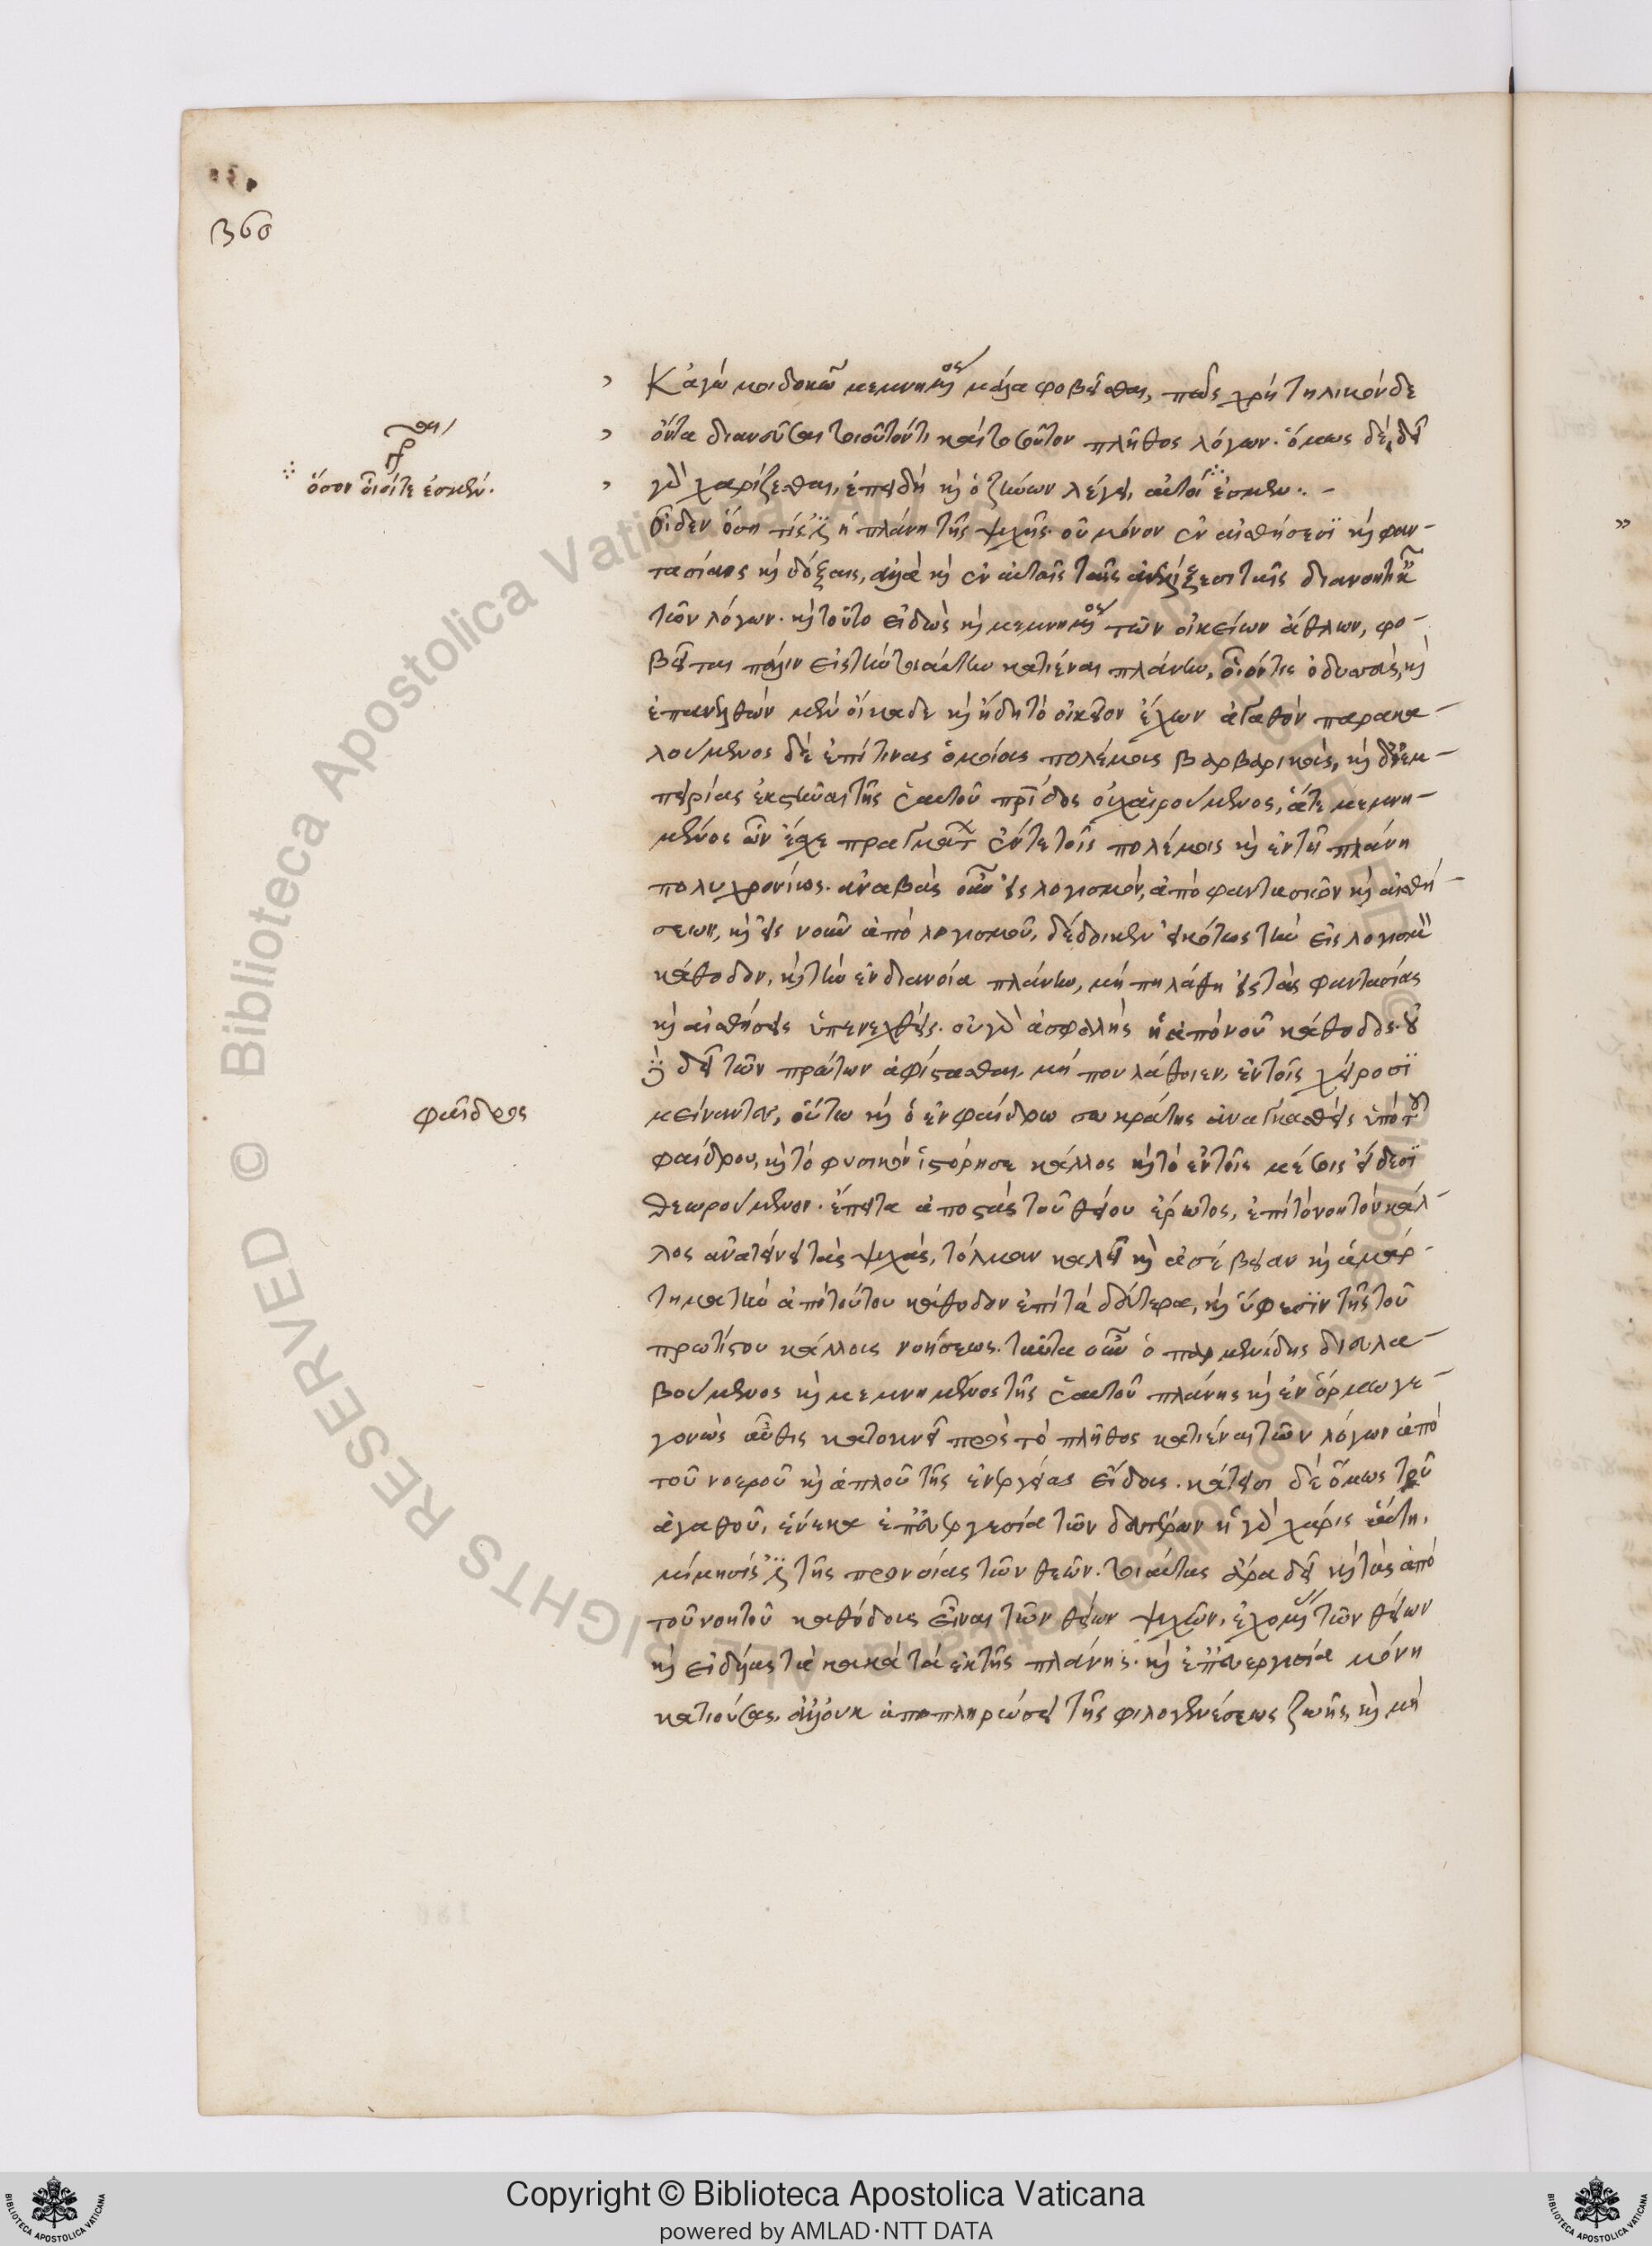 360
Κἀγώ μοι δοκῶ μεμνημένος μάλα φοβεῖσθαι, πῶς χρὴ τηλικόνδε
ὄντα διανεῦσαι τοιοῦτόν τι καὶ τοσοῦτον πλῆθος λόγων. ὅμως δὲ, δεῖ
γρ
ὅσον οἷοί τε ἐσμέν.
γὰρ χαρίζεσθαι, ἐπειδὴ καὶ ὃ ζήνων λέγει, αὐτοί ἐσμεν.
οἶδεν ὅση τίς ἐστὶν ἡ πλάνη τῆς ψυχῆς. οὐ μόνον ἐν αἰσθήσεσι καὶ φαν-
τασίαις καὶ δόξαις, ἀλλὰ καὶ ἐν αὐταῖς ταῖς ἀνελίξεσι ταῖς διανοητικαῖς
τῶν λόγων. καὶ τοῦτο εἰδὼς καὶ μεμνημένος τῶν οἰκείων ἄθλων, φο-
βεῖται πάλιν εἰς τὴν τοιαύτην κατιέναι πλάνην, οἷόν τις ὀδυσσεὺς, καὶ
ἐπανελθὼν μὲν οἴκαδε καὶ ἤδη τὸ οἰκεῖον ἔχων ἀγαθὸν παρακα-
λούμενος δὲ ἐπί τινας ὁμοίας πολέμους βαρβαρικοὺς, καὶ δι' ἐμ-
πειρίας ἐκστῆναι τῆς ἑαυτοῦ πατρίδος οὐχ αἱρούμενος, ἅτε μεμνη-
μένος ὧν ἔσχε πραγμάτων ἔν τε τοῖς πολέμοις καὶ ἐν τῇ πλάνῃ
πολυχρονίως. ἀναβὰς οὖν εἰς λογισμὸν, ἀπὸ φαντασιῶν καὶ αἰσθή-
σεων, καὶ εἰς νοῦν ἀπὸ λογισμοῦ, δέδοικεν εἰκότως τὴν εἰς λογισμὸν
κάθοδον, καὶ τὴν ἐν διανοίᾳ πλάνην, μή πη λάθῃ εἰς τὰς φαντασίας
καὶ αἰσθήσεις ὑπενεχθείς. οὐ γὰρ ἀσφαλὴς ἡ ἀπὸ νοῦ κάθοδος. οὐ
δεῖ τῶν πρώτων ἀφίστασθαι, μή που λάθοιεν, ἐν τοῖς χείροσι
φαῖδρος
μείναντες, οὕτω καὶ ὁ ἐν φαίδρῳ σωκράτης ἀναγκασθεὶς ὑπὸ τοῦ
φαίδρου, καὶ τὸ φυσικὸν ἱστόρησε κάλλος καὶ τὸ ἐν τοῖς μέσοις εἴδεσι
θεωρούμενον. ἔπειτα ἀποστὰς τοῦ θείου ἔρωτος, ἐπὶ τὸ νοητὸν κάλ-
λος ἀνατείνει τὰς ψυχάς, τόλμαν καλεῖ καὶ ἀσέβειαν καὶ ἁμάρ-
τημα τὴν ἀπὸ τούτου κάθοδον ἐπὶ τὰ δεύτερα, καὶ ὕφεσιν τῆς τοῦ
πρωτίστου κάλλους νοήσεως. ταῦτα οὖν ὁ παρμενίδης διευλα-
βούμενος καὶ μεμνημένος τῆς ἑαυτοῦ πλάνης καὶ ἐν ὅρμῳ γε-
γονὼς αὖθις κατοκνεῖ πρὸς τὸ πλῆθος κατιέναι τῶν λόγων ἀπὸ
τοῦ νοεροῦ καὶ ἁπλοῦ τῆς ἐνεργείας εἴδους. κάτεισι δὲ ὅμως τοῦ
ἀγαθοῦ, ἕνεκα ἐπ' εὐεργεσίᾳ τῶν δευτέρων ἡ γὰρ χάρις αὕτη,
μίμησίς ἐστι τῆς προνοίας τῶν θεῶν. τοιαύτας ἄρα δεῖ καὶ τὰς ἀπὸ
τοῦ νοητοῦ καθόδους εἶναι τῶν θείων ψυχῶν, ἐχομένας τῶν θείων
καὶ εἰδυίας τὰ κακὰ τὰ ἐκ τῆς πλάνης. καὶ ἐπ' εὐεργεσίᾳ μόνῃ
κατιούσας, ἀλλ' οὐκ ἀποπληρώσει τῆς φιλογενέσεως ζωῆς, καὶ μὴ